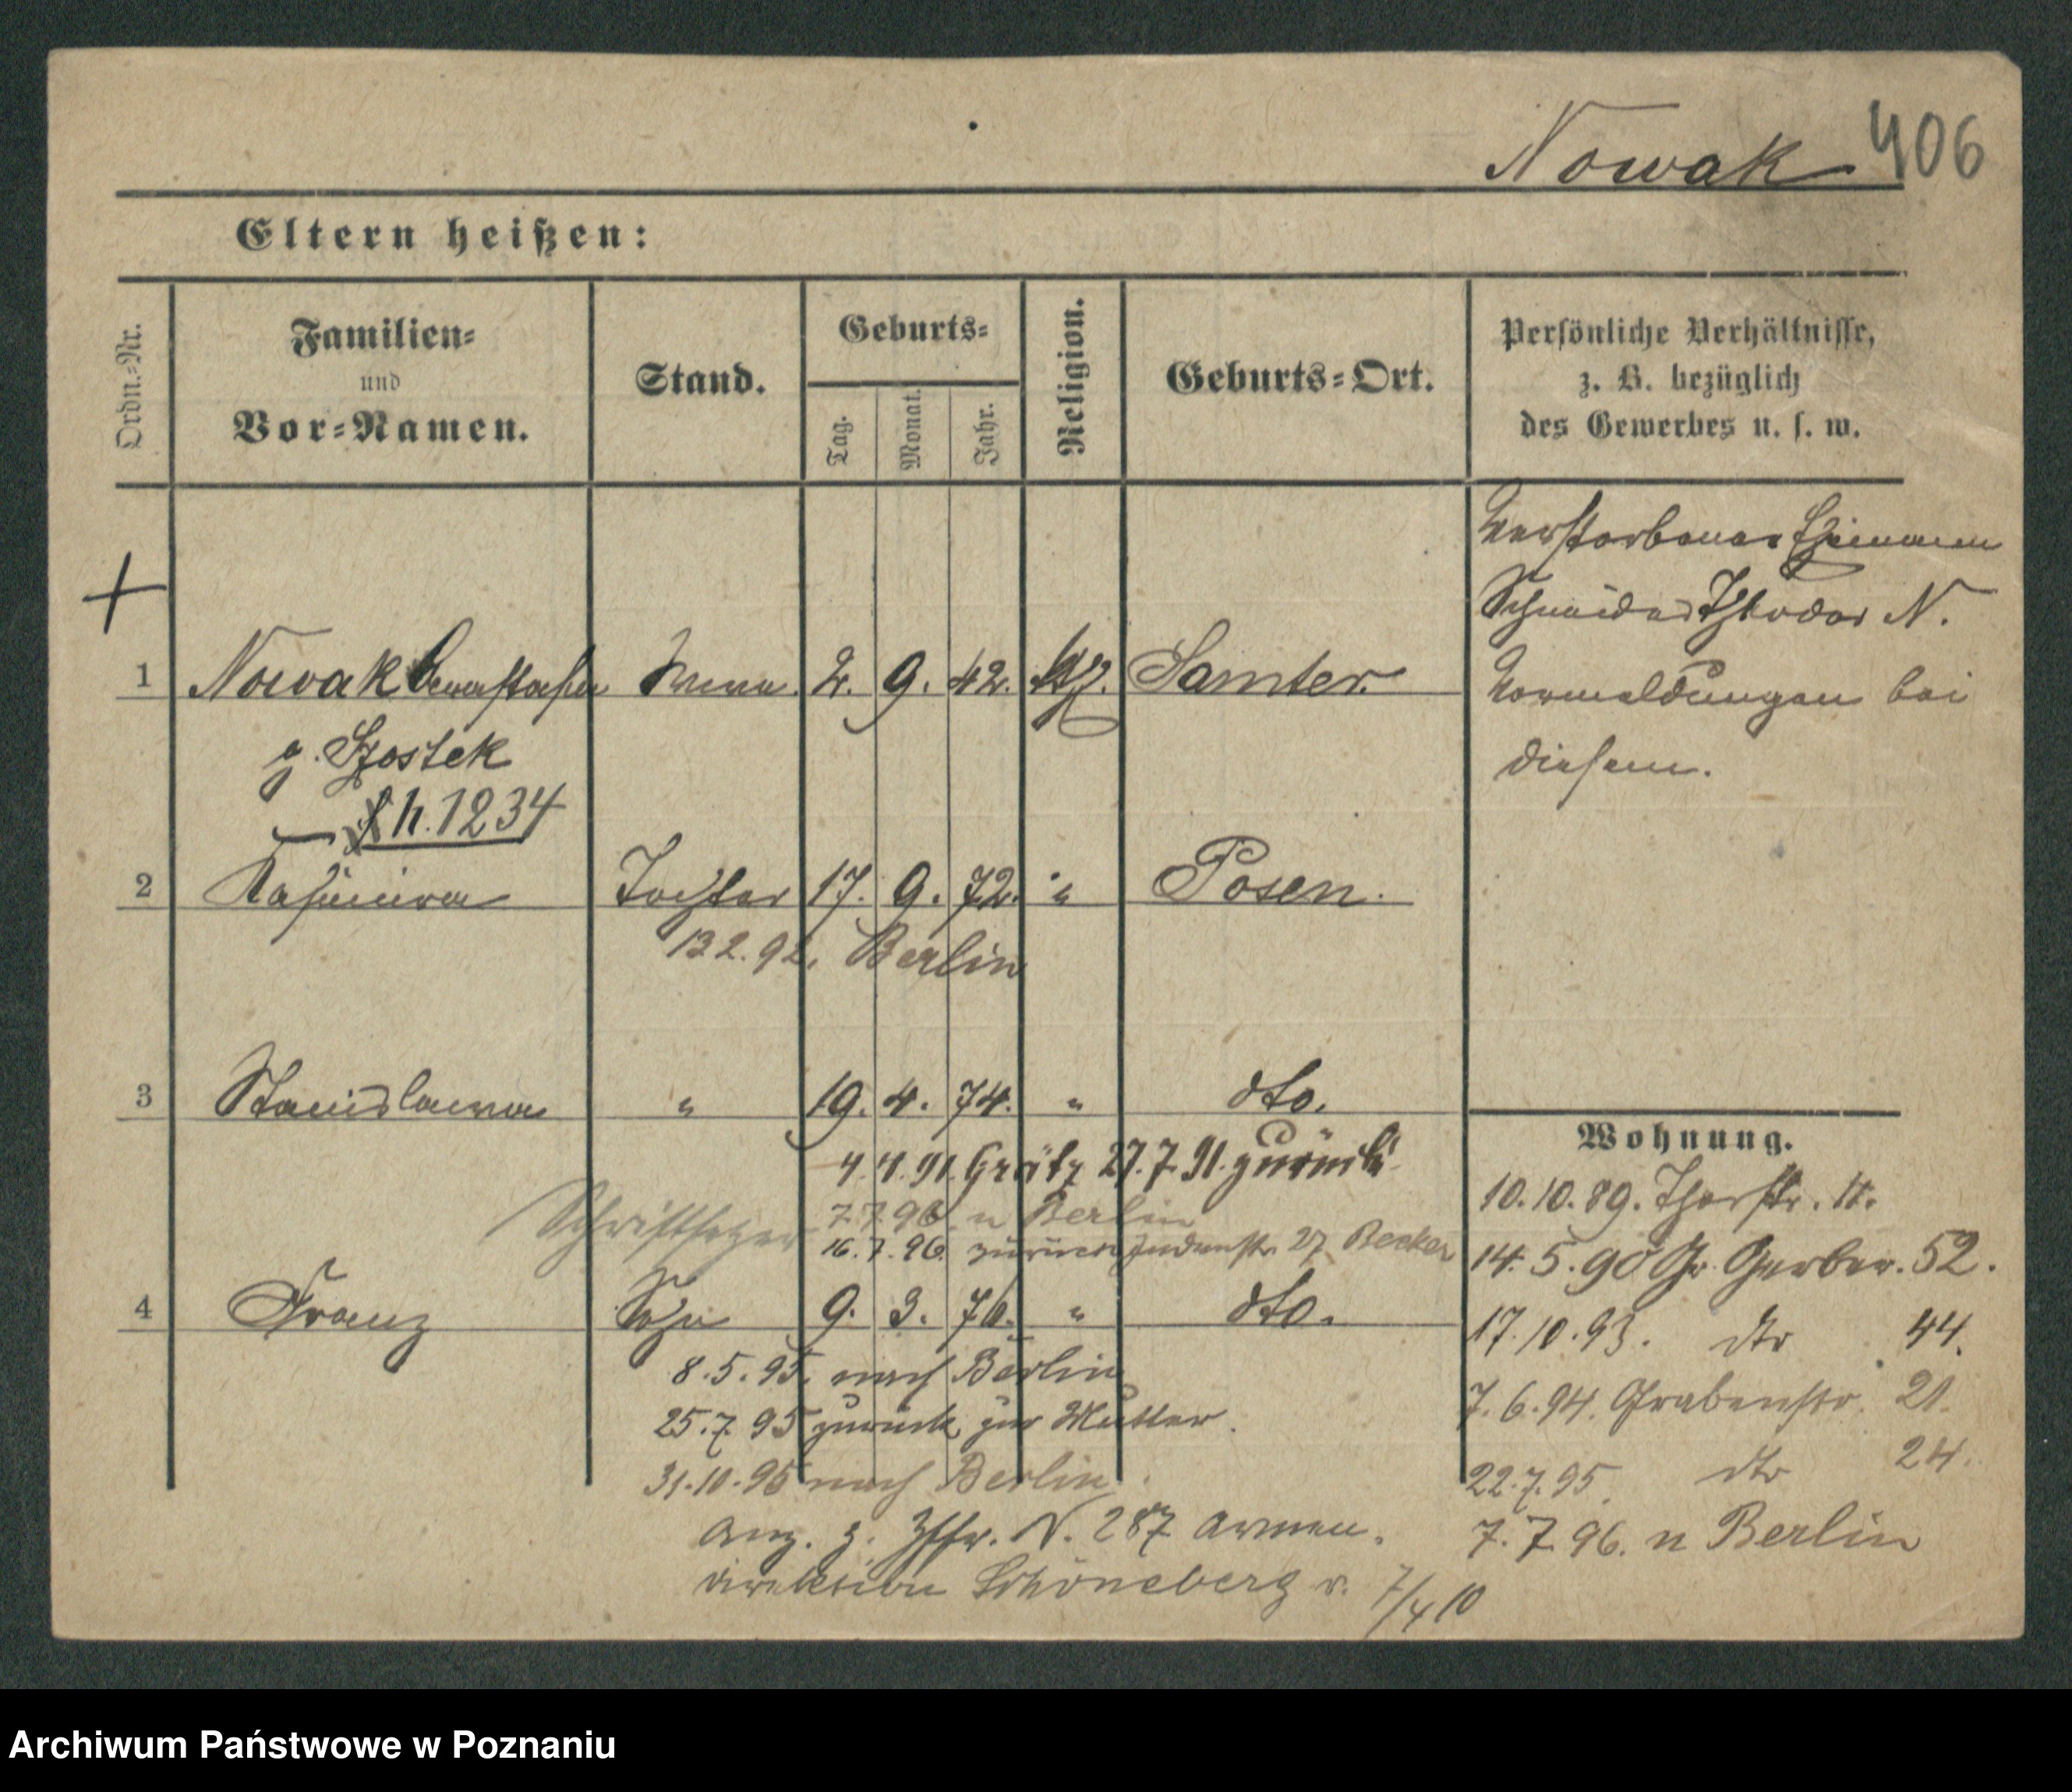 Nowak 406
Eltern heißen:
Ordn.-Nr.
Familien-
und
Vor-Namen.
Stand.
Geburts-
Tag.
Monat.
Jahr.
Religion.
Geburts-Ort.
Persönliche Verhältnisse,
z. B. bezüglich
des Gewerbes u. s. w.
Verstorbener Ehemann
Schneider Theodor N.
Vormeldungen bei
diesem.
1 Nowak 2. 9. 42. Samter.
g. Szostek
h. 1234
2 Kasimira Tochter 17. 9. 72. " Posen.
13 2. 92. Berlin
3 Stanislawa " 19. 4. 74. " dto.
4. 4. 91. Grätz 27. 7. 91. zurück
7. 7. 96. n Berlin
Schriftsetzer 16. 7. 96. zurück Judenstr. 27 Becker
4 Franz Sohn 9. 3. 76. " dto.
8. 5. 95. nach Berlin
25. 7. 95 zurück zur Mutter.
31. 10. 95 nach Berlin.
Anz. z. N. 287 Armen.
direktion Schöneberg v. 7/4 10
Wohnung.
10. 10. 89. Thorstr. 11.
14. 5. 90 Gr. Gerber. 52.
17. 10. 93. dto 44.
7. 6. 94. Grabenstr. 21.
22. 7. 95. dto 24.
7. 7. 96. n Berlin
Archiwum Państwowe w Poznaniu